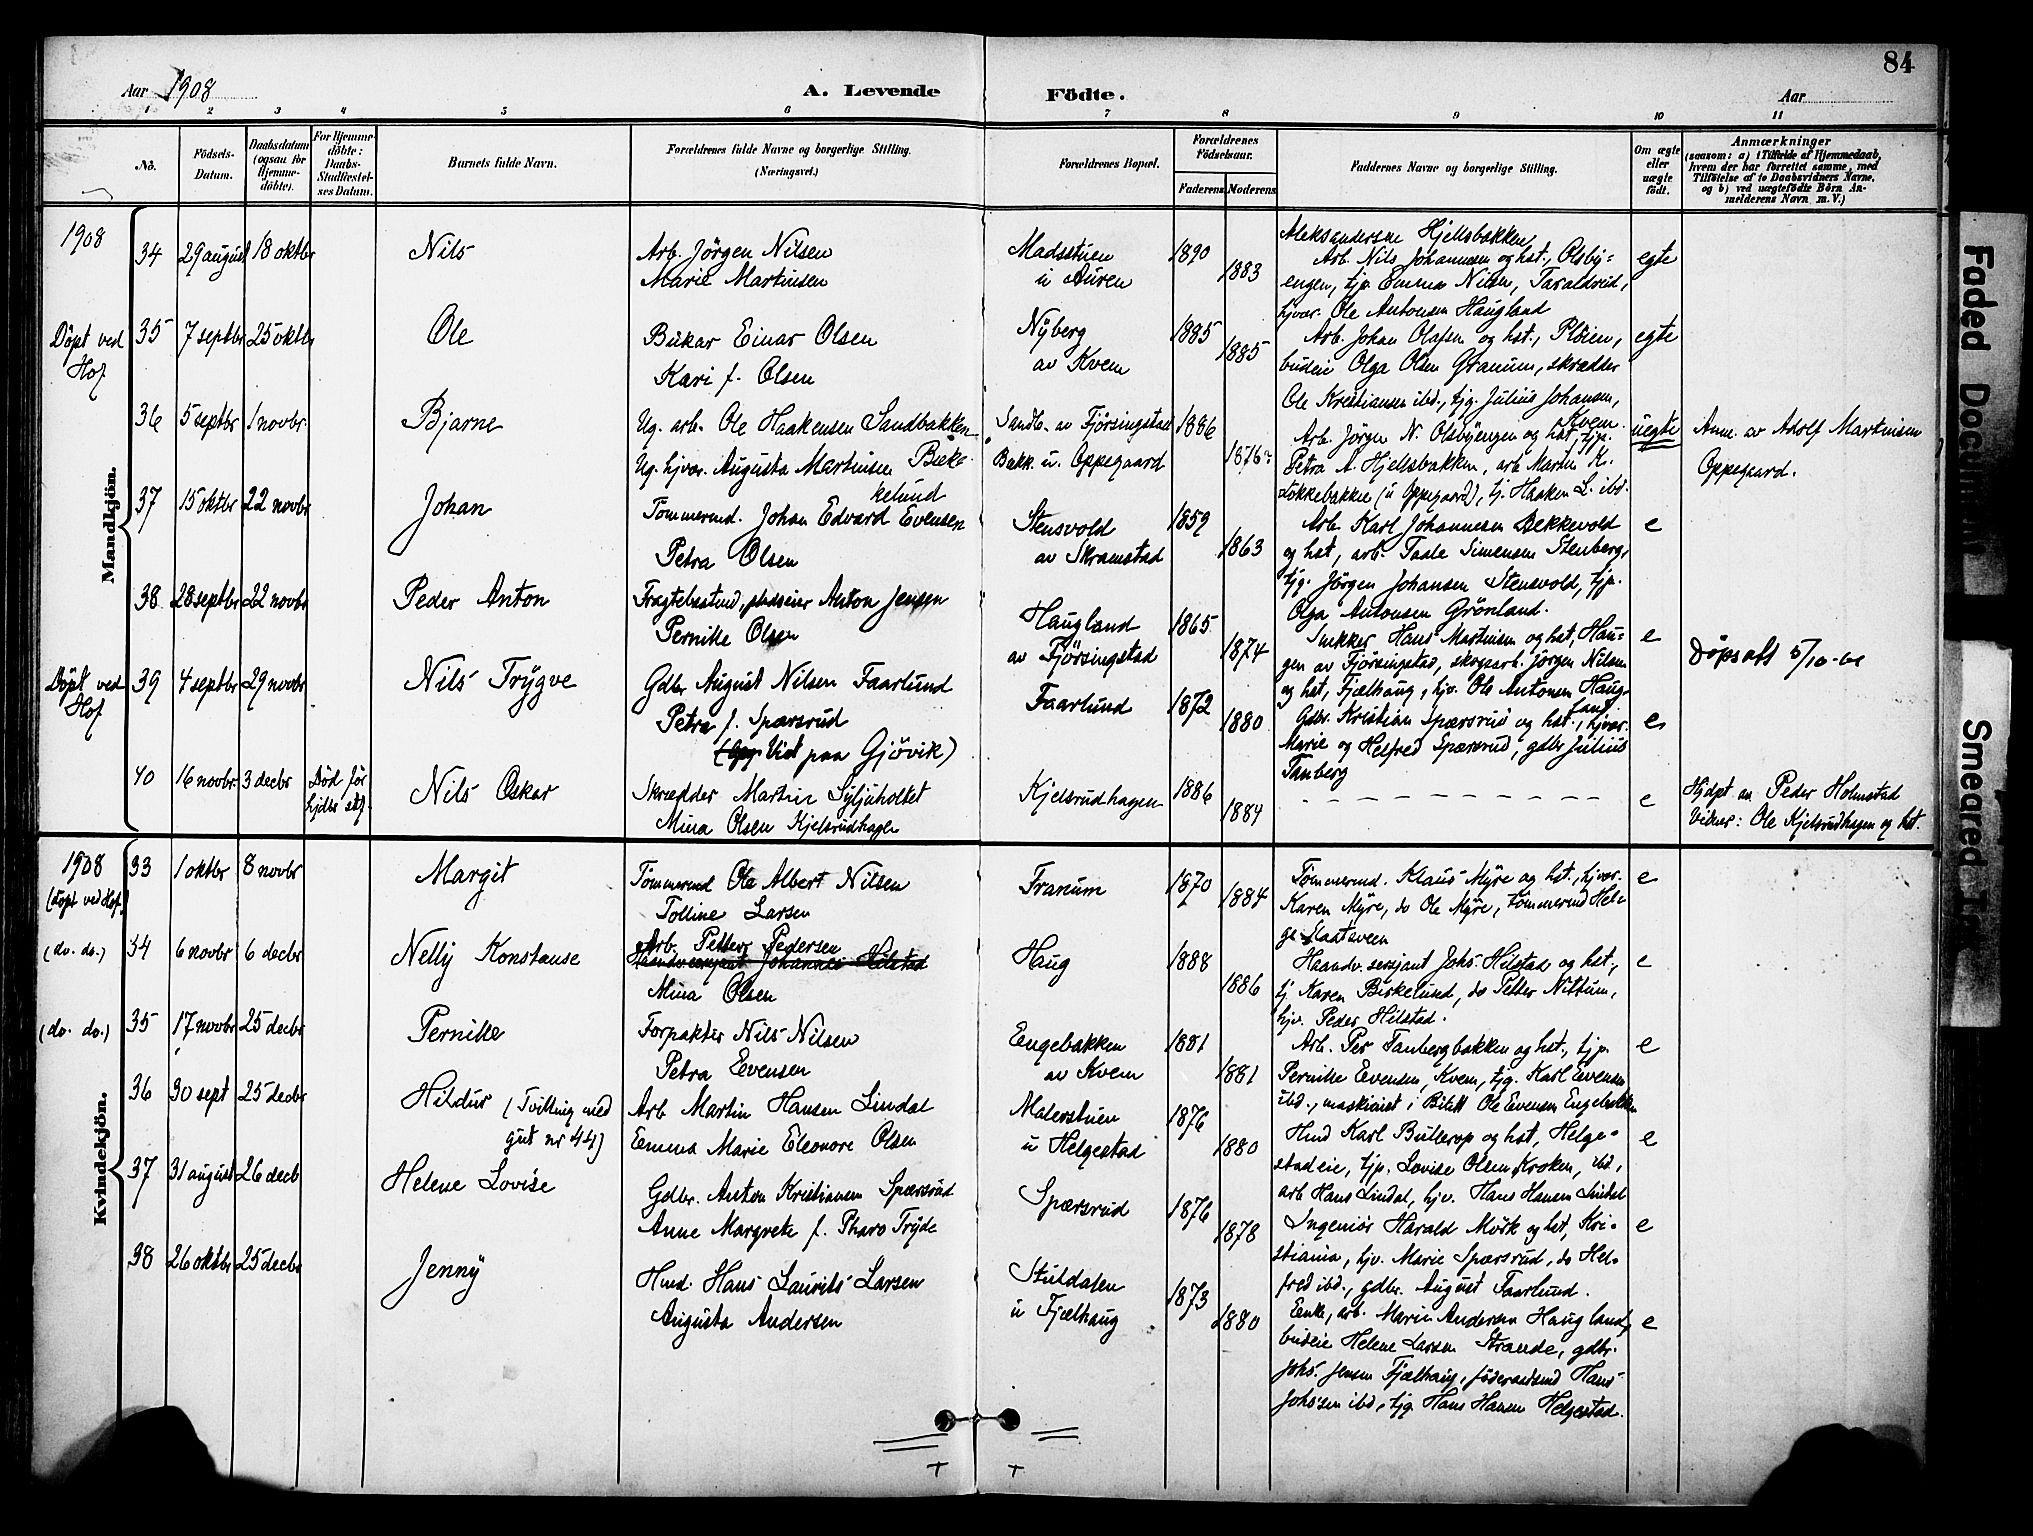 84
Aar 1908
A. Levende Födte.
Aar
1 2 3 4 5 6 7 8 9 10 11
No.
Födsels-Datum.
Daabsdatum (ogsaa for Hjemme-döbte).
For Hjemme-döbte: Daabs-Stadfæstel-ses Datum.
Barnets fulde Navn.
Forældrenes fulde Navne og borgerlige Stilling. (Næringsvei.)
Forældrenes Bopæl.
Forældrenes Födselsaar.
Faderens Moderens
Faddernes Navne og borgerlige Stilling.
Om ægte eller uægte födt.
Anmærkninger
(saasom: a) i Tilfælde af Hjemmedaab,
hvem der har forrettet samme, med
Tilföielse af to Daabsvidners Navne,
og b) ved uægtefödte Börn An-
melderens Navn m. V.)
Mandkjön.
1908
34 29 august 18 oktbr
Nils
Arb. Jörgen Nilsen
Marie Martinsen
Madsstuen
u Auren
1890 1883
Aleksandersne Hjellsbakken
Arb Nils Johannesen og hst., Olsby=
engen, tjp Emma Nilsen, Taraldrud,
hjvar. Ole Antonsen Haugland
egte
Döpt ved Hof
35 7 septbr 25 oktbr
Ole
Einar Olsen
Kari f. Olsen
Nÿberg
av Kvem
1885 1885
Arb. Johan Olafsen og hst., Plöien,
budeie Olga Olsen Granum, skrædder
Ole Kristiansen ibd., tjg. Julius Johansen,
Kvem.
egte
36 5 septbr 1 novbr.
Bjarne
Ug. arb. Ole Haakensen Sandbakken
Ug. hjvar. Augusta Martinsen Birke-
kelund
Sandb. av Fjörsingstad
Bækk. u. Oppegaard
1886 1876
Arb. Jörgen N. Olsbÿengen og hst, tjp.
Petra A. Hjellsbakken, arb Martin K.
Lökkebakken (u Oppegaard), tj. Haaken L. ibd.
uegte
Anm. av Adolf Martinsen
Oppegaard.
37 15 oktbr 22 novbr
Johan
Tömmermd. Johan Edvard Evensen
Petra Olsen
Stensvold
av Skramstad
1859 1863
Arb. Karl Johannesen Bekkevold
og hst, arb. Taale Simensen Stenberg,
tjg. Jörgen Johansen Stensvold, tjp.
Olga Antonsen Grönland.
e
38 28 septbr 22 novbr
Peder Anton
Anton Jensen
Pernille Olsen
Haugland
av Fjörsingstad
1865 1874
Snekker Hans Martinsen og hst, Hau=
gen av Fjörsingstad, skogarb. Jörgen Nilsen
og hst, Fjælhaug, hjv. Ole Antonsen Haug-
land
e
Döpsatt 5/10
Döpt ved Hof
39 4 septbr 29 novbr
Nils Trÿgve
Gdbr August Nilsen Faarlund
Petra f. Spærsrud
(Viet paa Gjövik)
Faarlund
1872 1880
Gdbr. Kristian Spærsrud og hst., hjvar.
Marie og Helfred Spærsrud, gdbr Julius
Tanberg
e
40 16 novbr. 3 decbr
Död för
Nils Oskar
Skrædder Martin Sÿljuholtet
Mina Olsen Kjelsrudhagen
Kjelsrudhagen
1886 1884
e
Hjdpt av Peder Holmstad
Vidner: Ole Kjelsrudhagen og hst.
Kvindekjön.
1908
(döpt ved Hof)
33 1 oktbr 8 novbr
Margit
Tömmermd Ole Albert Nilsen
Tolline Larsen
Franum
1870 1884
Tömmermd. Klaus Mÿre og hst., hjvar.
Karen Mÿre, do Ole Mÿre, tömmermd Hel=
ge Slaatsveen
e
(do. do.)
34 6 novbr 6 decbr
Nellÿ Konstanse
Arb. Petter Pedersen
Haandv.sersjant Johannes Hilstad
Mina Olsen
Haug
1888 1886
Haandv. sersjant Johs. Hilstad og hst.,
tj Karen Birkelund, do Petter Nittum,
hjv. Peder Hilstad.
e
(do. do.)
35 17 novbr 25 decbr
Pernille
Forpakter Nils Nilsen
Petra Evensen
Engebakken
av Kvem
1881 1881
Arb. Per Tanbergbakken og hst., tjp.
Pernille Evensen, Kvem, tjg. Karl Evensen
ibd., maskinist i Ole Evensen Engebakken
e
36 30 sept 25 decbr
Hildur (Tvilling med
gut nr 44)
Arb Martin Hansen Lindal
Emma Marie Eleonore Olsen
Malerstuen
u Helgestad
1876 1880
Hmd Karl Bullerop og hst, Helge=
stadeie, tjp. Lovise Olsen Kroken, ibd,
arb Hans Lindal, hjv. Hans Hansen Lindal
e
37 31 august 26 decb
Helene Lovise
Gdbr. Anton Kristiansen Spærsrud
Anne Margrete f. Pharo Trÿde
Spærsrud
1876 1878
Ingeniör Harald Mörk og hst, Kri=
stiania, hjv. Marie Spærsrud, do Hel=
fred ibd, gdbr. August Faarlund.
e
38 26 oktbr 25 decbr
Jennÿ
Hmd. Hans Laurits Larsen
Augusta Andersen
Stuldalen
u Fjælhaug
1873 1880
Enke, arb. Marie Andersen Haugland,
budeie Helene Larsen Strande, gdbr.
Johs. Jensen Fjælhaug, föderaadsmd Hans
Johssen ibd, tjg. Hans Hansen Helgestad.
e
Faded Document
Smeared Ink